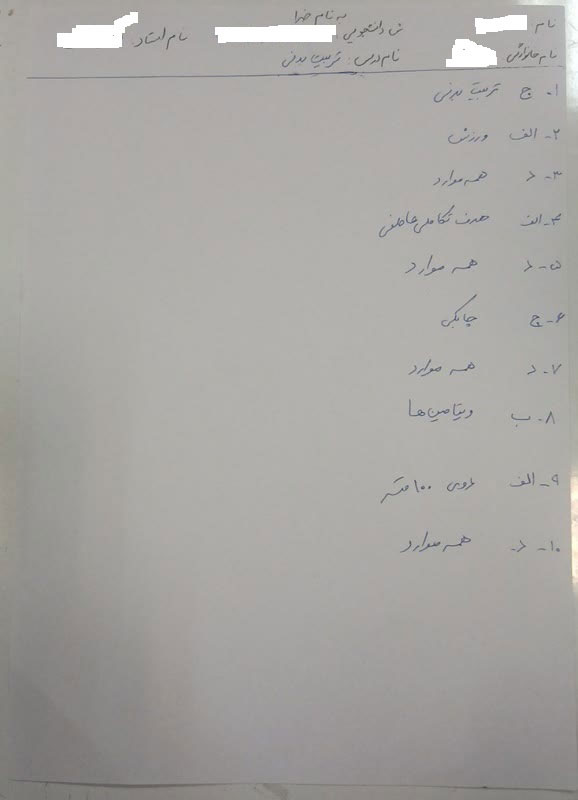 به نام خدا
نام: ش دانشجویی: نام استاد:
نام خانوادگی: نام درس: تربیت بدنی
۱. ج تربیت بدنی
۲- الف ورزش
۳- د همه موارد
۴- الف هدف تکاملی عاطفی
۵- د همه موارد
۶- ج چابکی
۷- د همه موارد
۸- ب ویتامین ها
۹- الف دوی ۱۰۰ متر
۱۰- د همه موارد